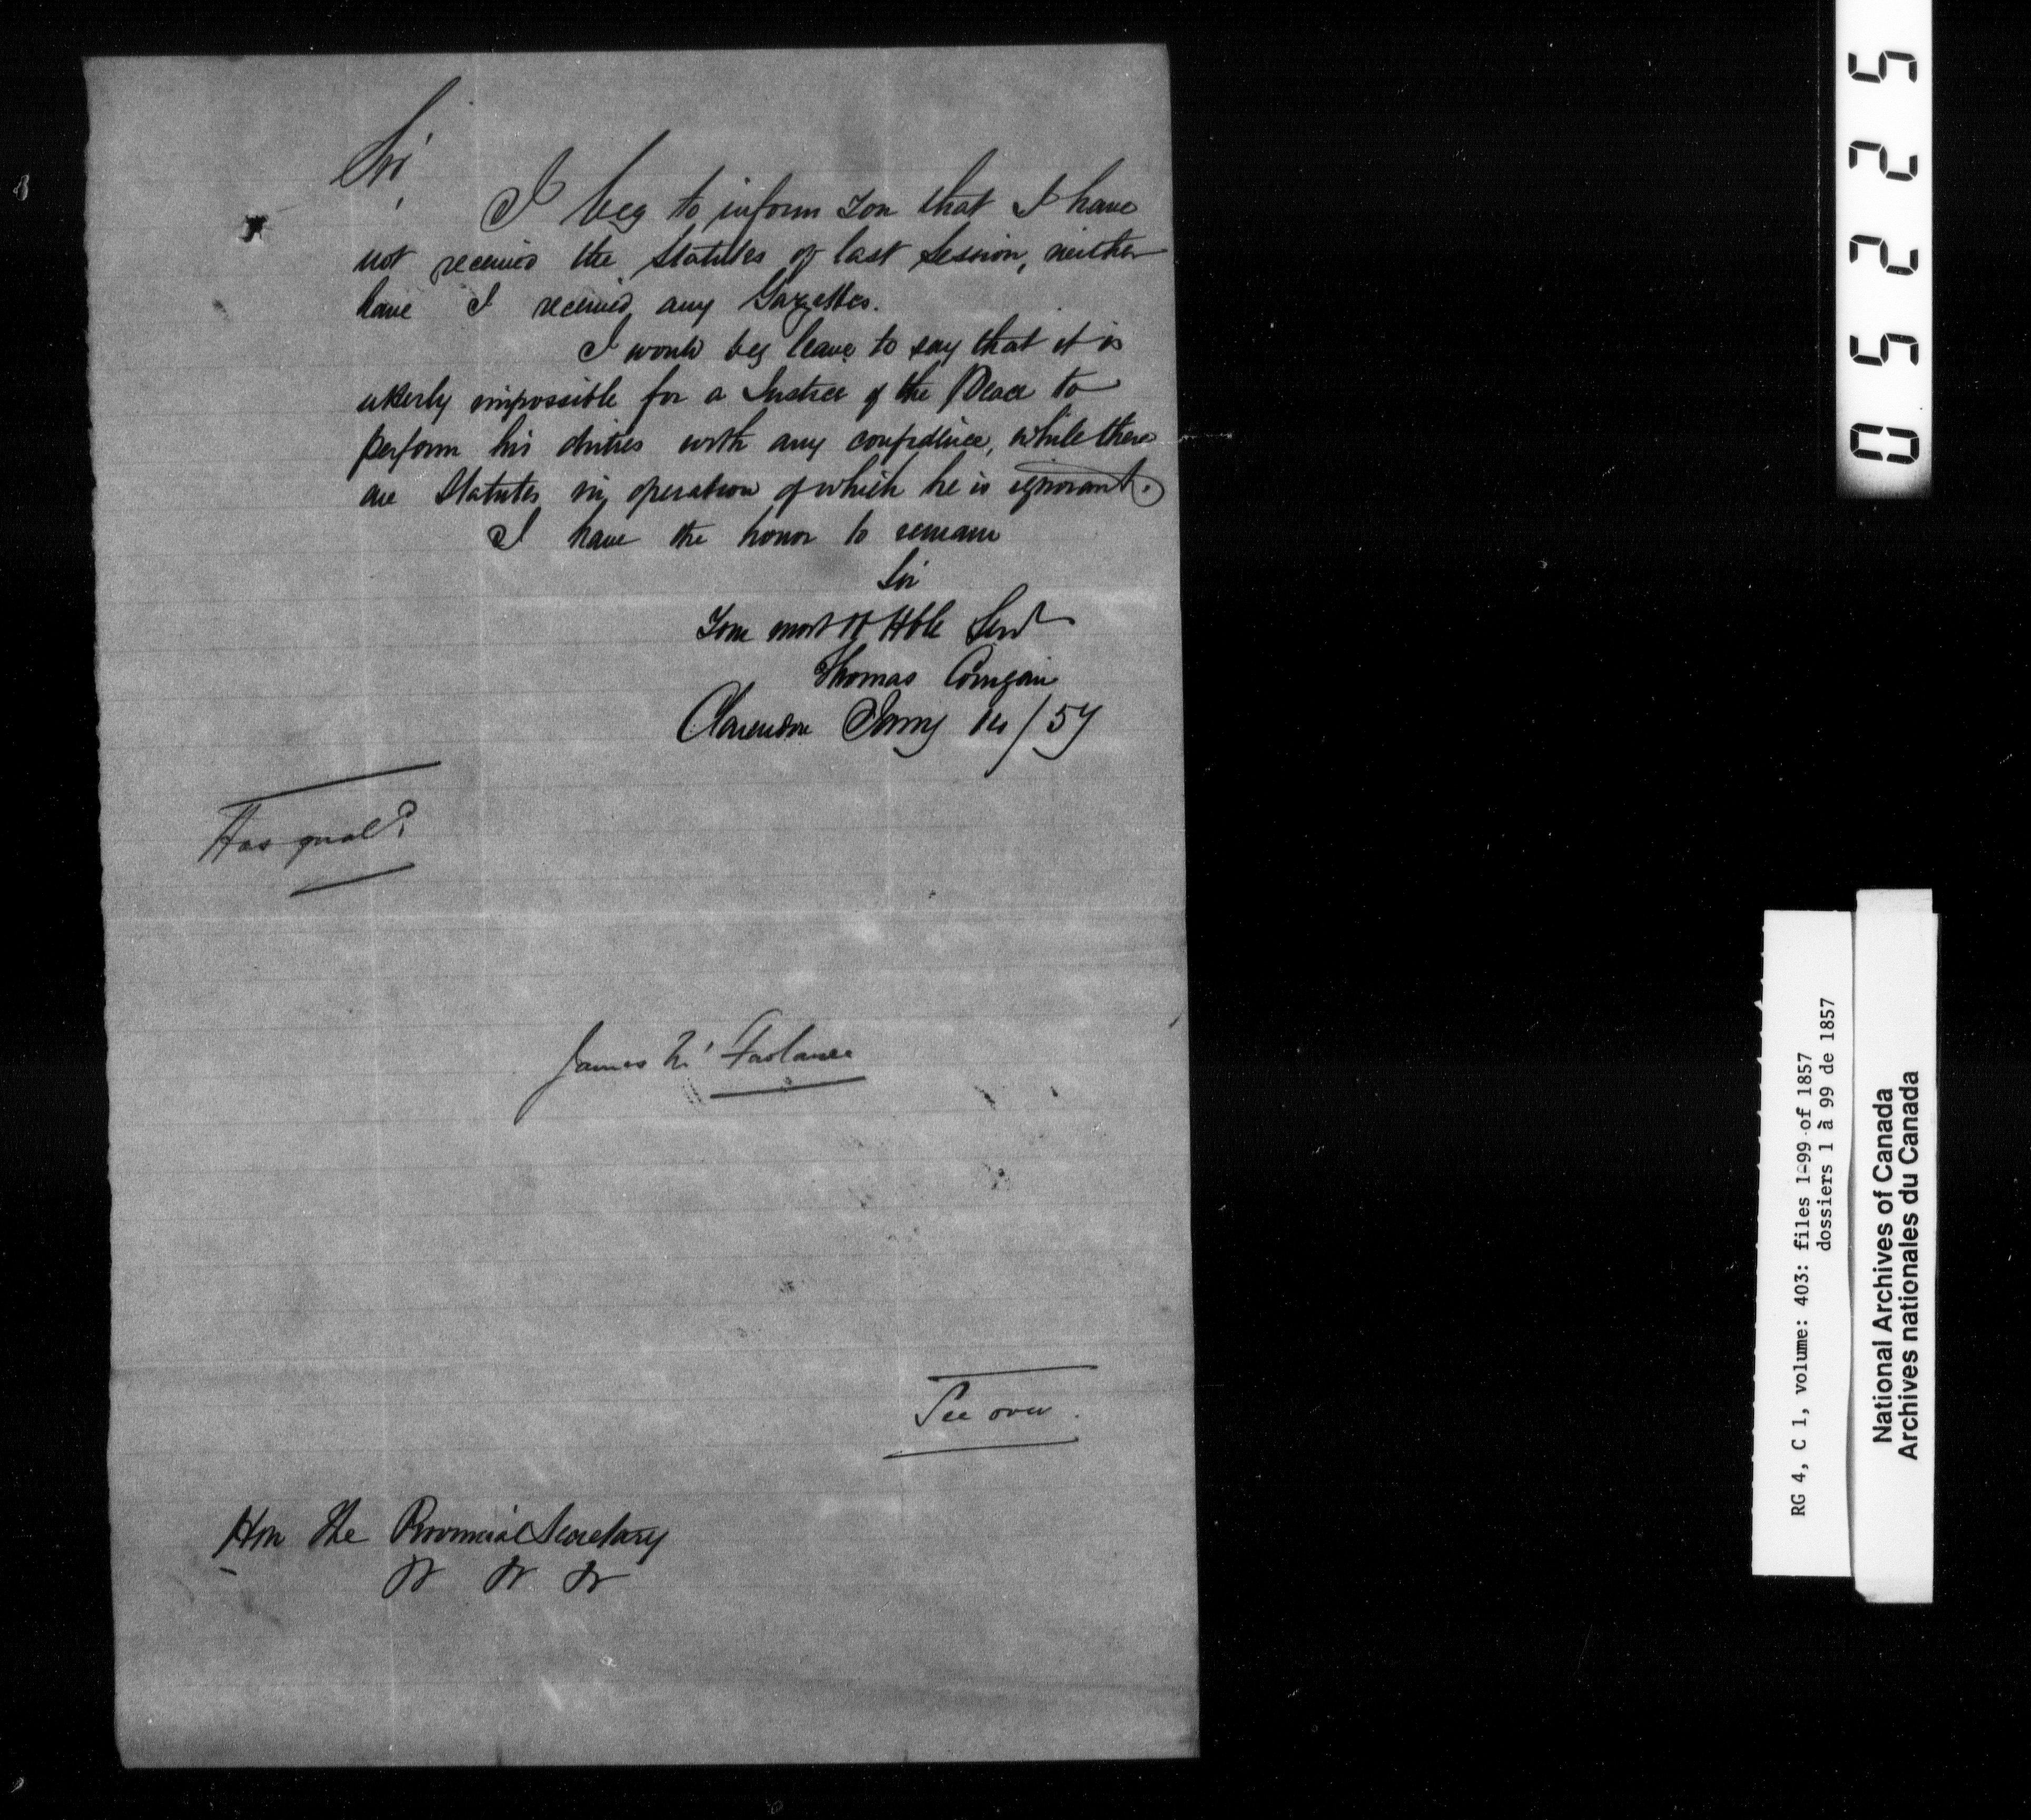 Sir,
I beg to inform You that I have
not received the Statutes of last Session, neither
have I received any Gazettes.
I would beg leave to say that it is
utterly impossible for a Justice of the Peace to
perform his duties with any confidence, while there
are Statutes in operation of which he is ignorant.
I have the honor to remain
Sir
Your most Hble Servt
Thomas Corrigan
Clarendon Jany /57
Has qual?
James Mc Farlane
See over.
Hon The Provincial Secretary
05225
RG 4, C 1, volume: 403: files 1-99 of 1857
dossiers 1 à 99 de 1857
National Archives of Canada
Archives nationales du Canada